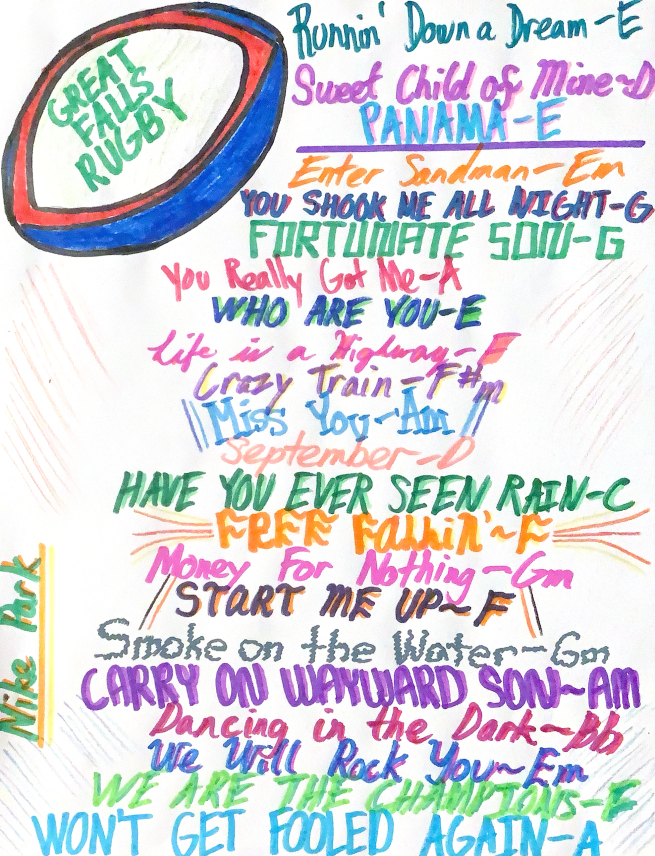 GREAT
FALLS
RUGBY
Runnin' Down a Dream-E
Sweet Child of Mine~D
PANAMA-E
Enter Sandman-Em
YOU SHOOK ME ALL NIGHT-G
FORTUNATE SON-G
You Really Got Me-A
WHO ARE YOU-E
Life is a Highway-F
Crazy Train-F#m
Miss You-Am
September-D
HAVE YOU EVER SEEN RAIN-C
FREE FALLiN'~F
Money For Nothing-Gm
START ME UP~F
Smoke on the Water-Gm
CARRY ON WAYWARD SON~AM
Dancing in the Dark~Bb
We Will Rock You~Em
WE ARE THE CHAMPIONS-E
WON'T GET FOOLED AGAIN-A
Nike Park